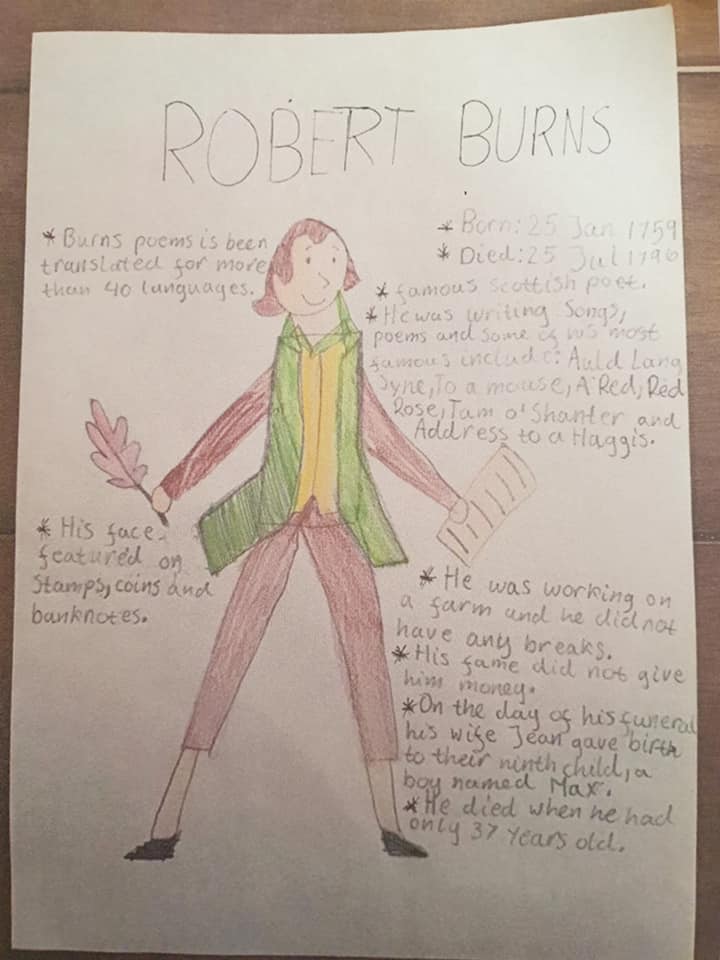 ROBERT BURNS
* Burns poems is been
translated for more
than 40 languages.
* Born: 25 Jan 1759
* Died: 25 Jul 1796
* famous scottish poet.
* He was writing Songs,
poems and some of his most
famous include: Auld Lang
Syne, To a mouse, A Red, Red
Rose, Tam o'Shanter and
Address to a Haggis.
* His face
featured on
Stamps, coins and
banknotes.
* He was working on
a farm and he did not
have any breaks.
* His fame did not give
him money.
* On the day of his funeral
his wife Jean gave birth
to their ninth child, a
boy named Max.
* He died when he had
only 37 years old.